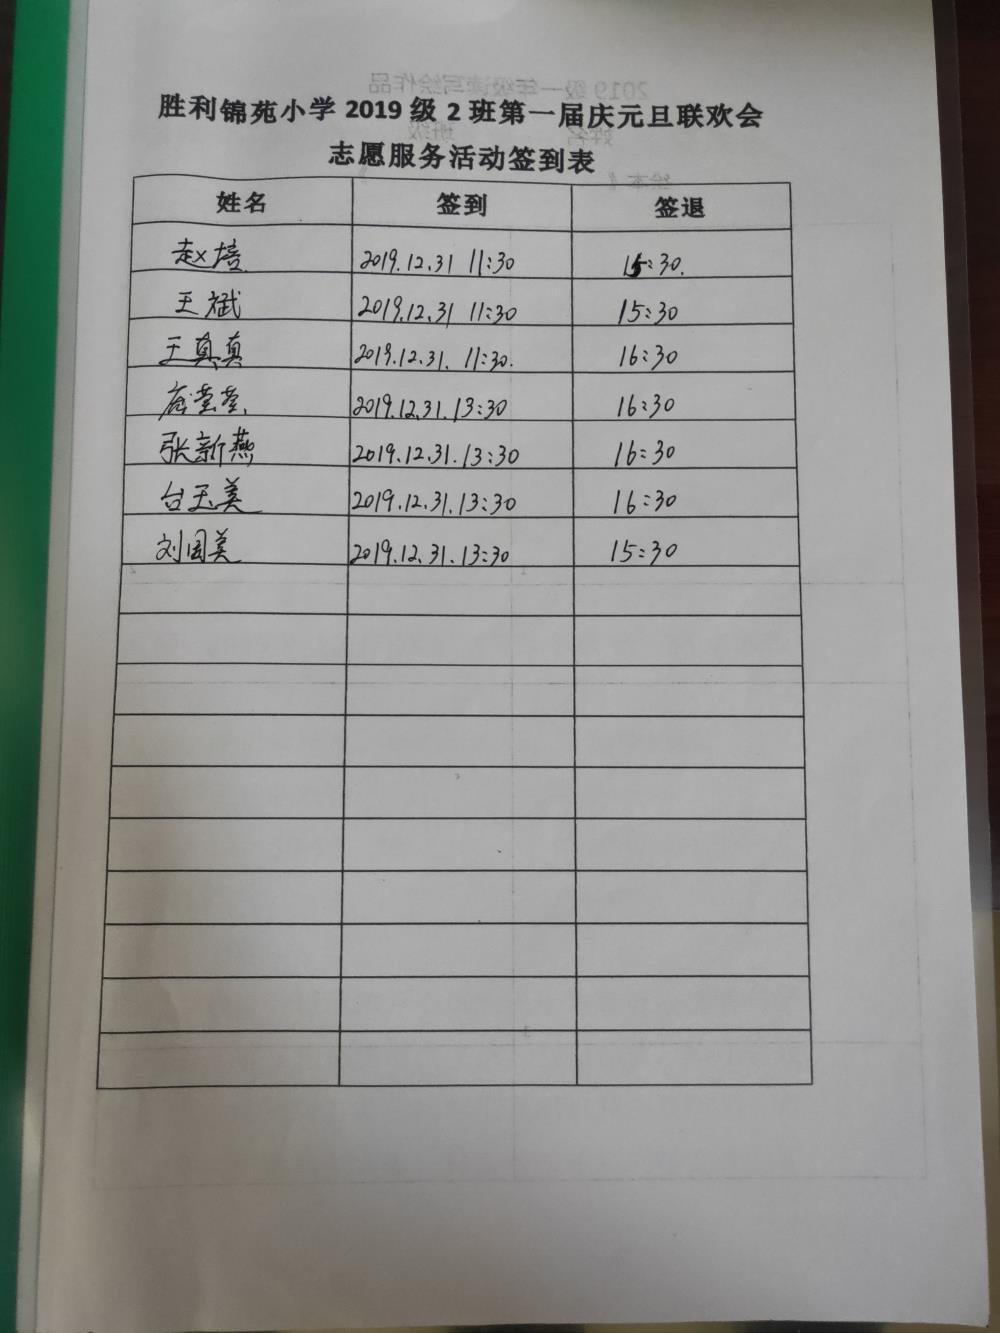 胜利锦苑小学2019级2班第一届庆元旦联欢会
志愿服务活动签到表
姓名 签到 签退
赵培 2019.12.31 11:30 15:30.
王斌 2019.12.31 11:30 15:30
王真真 2019.12.31. 11:30. 16:30
2019.12.31.13:30 16:30
张新燕 2019.12.31.13:30 16:30
台玉美 2019.12.31.13:30 16:30
刘国美 2019.12.31.13:30 15:30